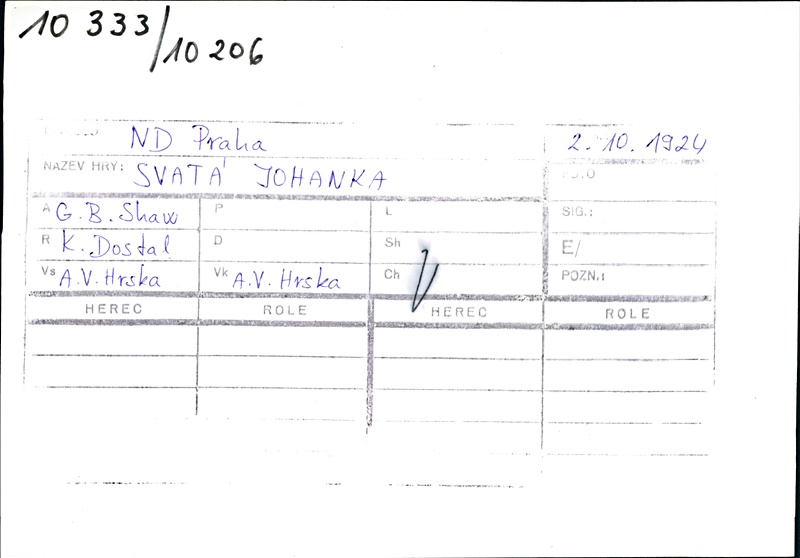 10 333/10 206
ND Praha 2. 10. 1924
NÁZEV HRY: SVATÁ JOHANKA
A G. B. Shaw P L SIG.:
R K. Dostal D Sh E/
Vs A.V. Hrska Vk A.V. Hrska Ch POZN.:
HEREC ROLE HEREC ROLE